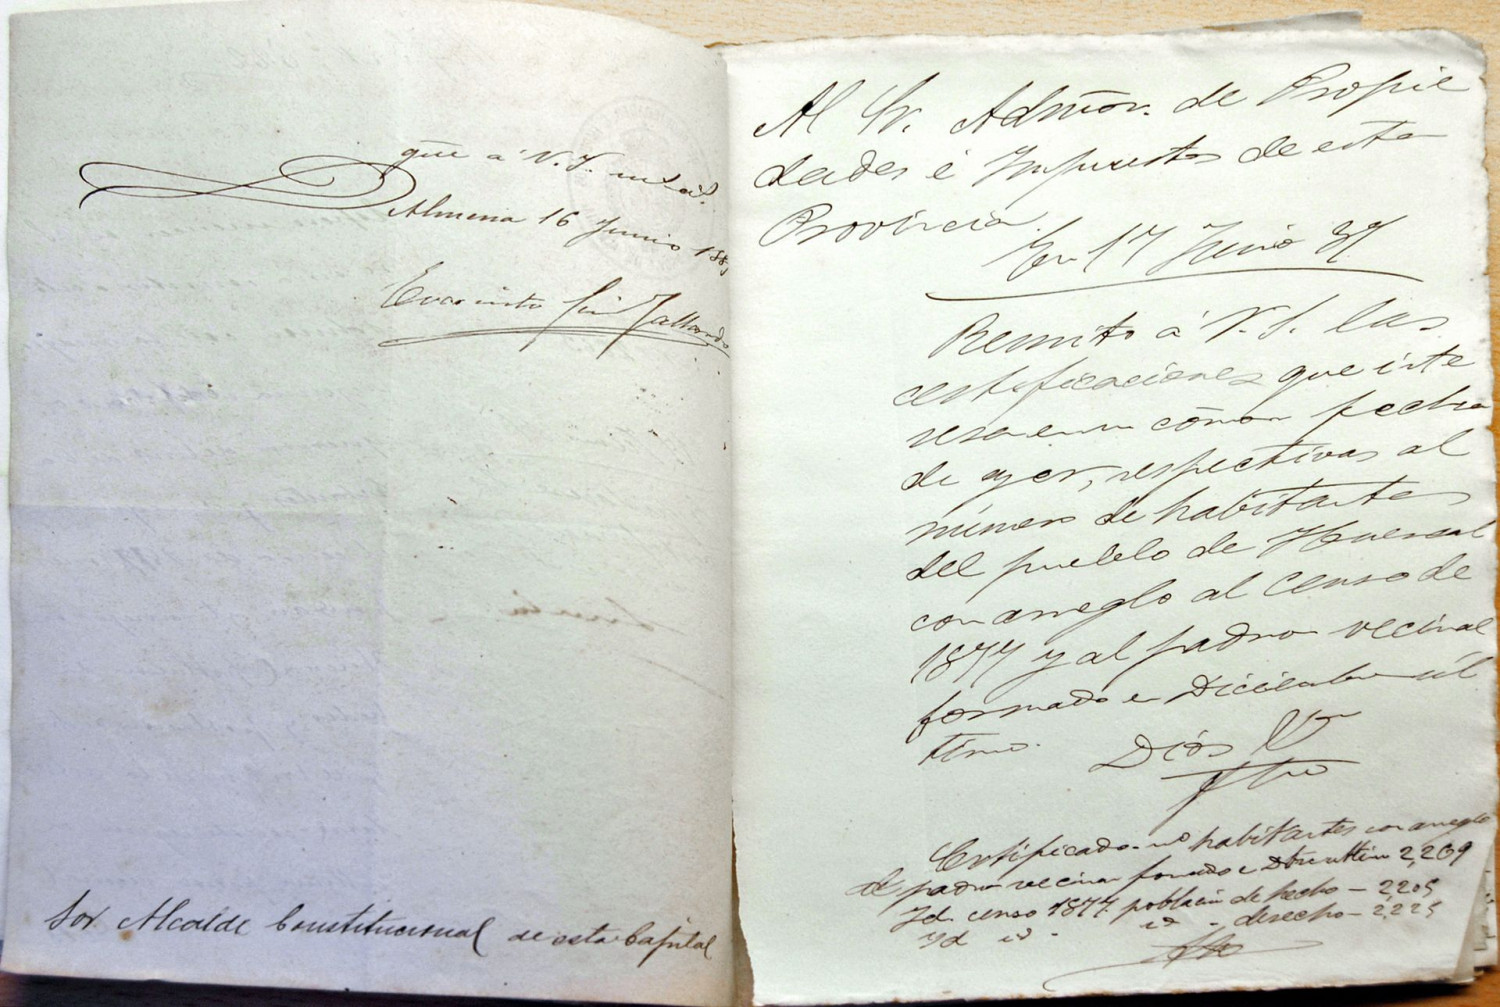 que á V. S. m. a.
Almeria 16 Junio 188
Evaristo
Sor Alcalde Constitucional de esta Capital
Al Sr. Admor. de Propie
dades é Impuestos de esta
Provincia.
En 17 Junio 87
Remito á V. S. las
certificaciones que inte
resa en su comon fecha
de ayer, respectivas al
número de habitantes
del pueblo de Huercal
con arreglo al censo de
1877 y al padron vecinal
formado en Diciembre úl
timo. Dios
Certificado no habitantes con arreglo
al padron vecinal formado en Dbre ultimo 2,209
Id. censo 1877 población de hecho - 2205
Id id - id - derecho - 2,225